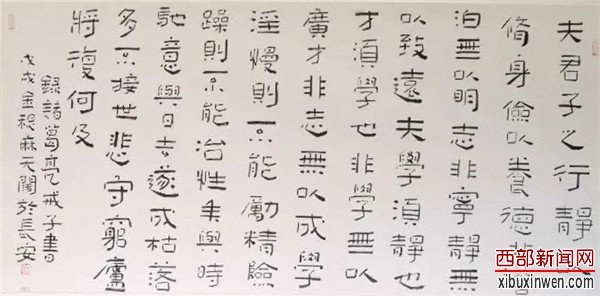 夫君子之行靜以
脩身儉以養德非
泊無以明志非寧靜無
以致遠夫學須靜也
才須學也非學無以
廣才非志無以成學
淫慢則不能勵精險
躁則不能治性年與時
馳意與日去遂成枯落
多不接世悲守窮廬
將復何及
錄諸葛亮戒子書
戊戌金麻天闊於長安
西部新闻网
xibuxinwen.com